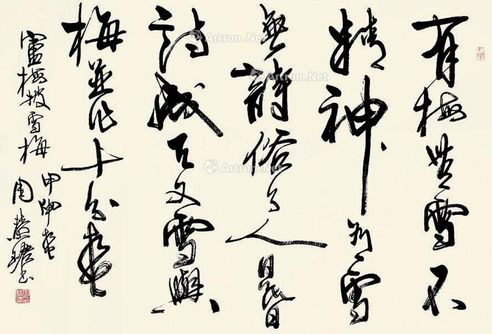 有梅無雪不
精神有雪
無詩俗了人日暮
詩成天又雪與
梅並作十分春
盧梅坡雪梅
甲申春
周慧珺书
Artron.Net